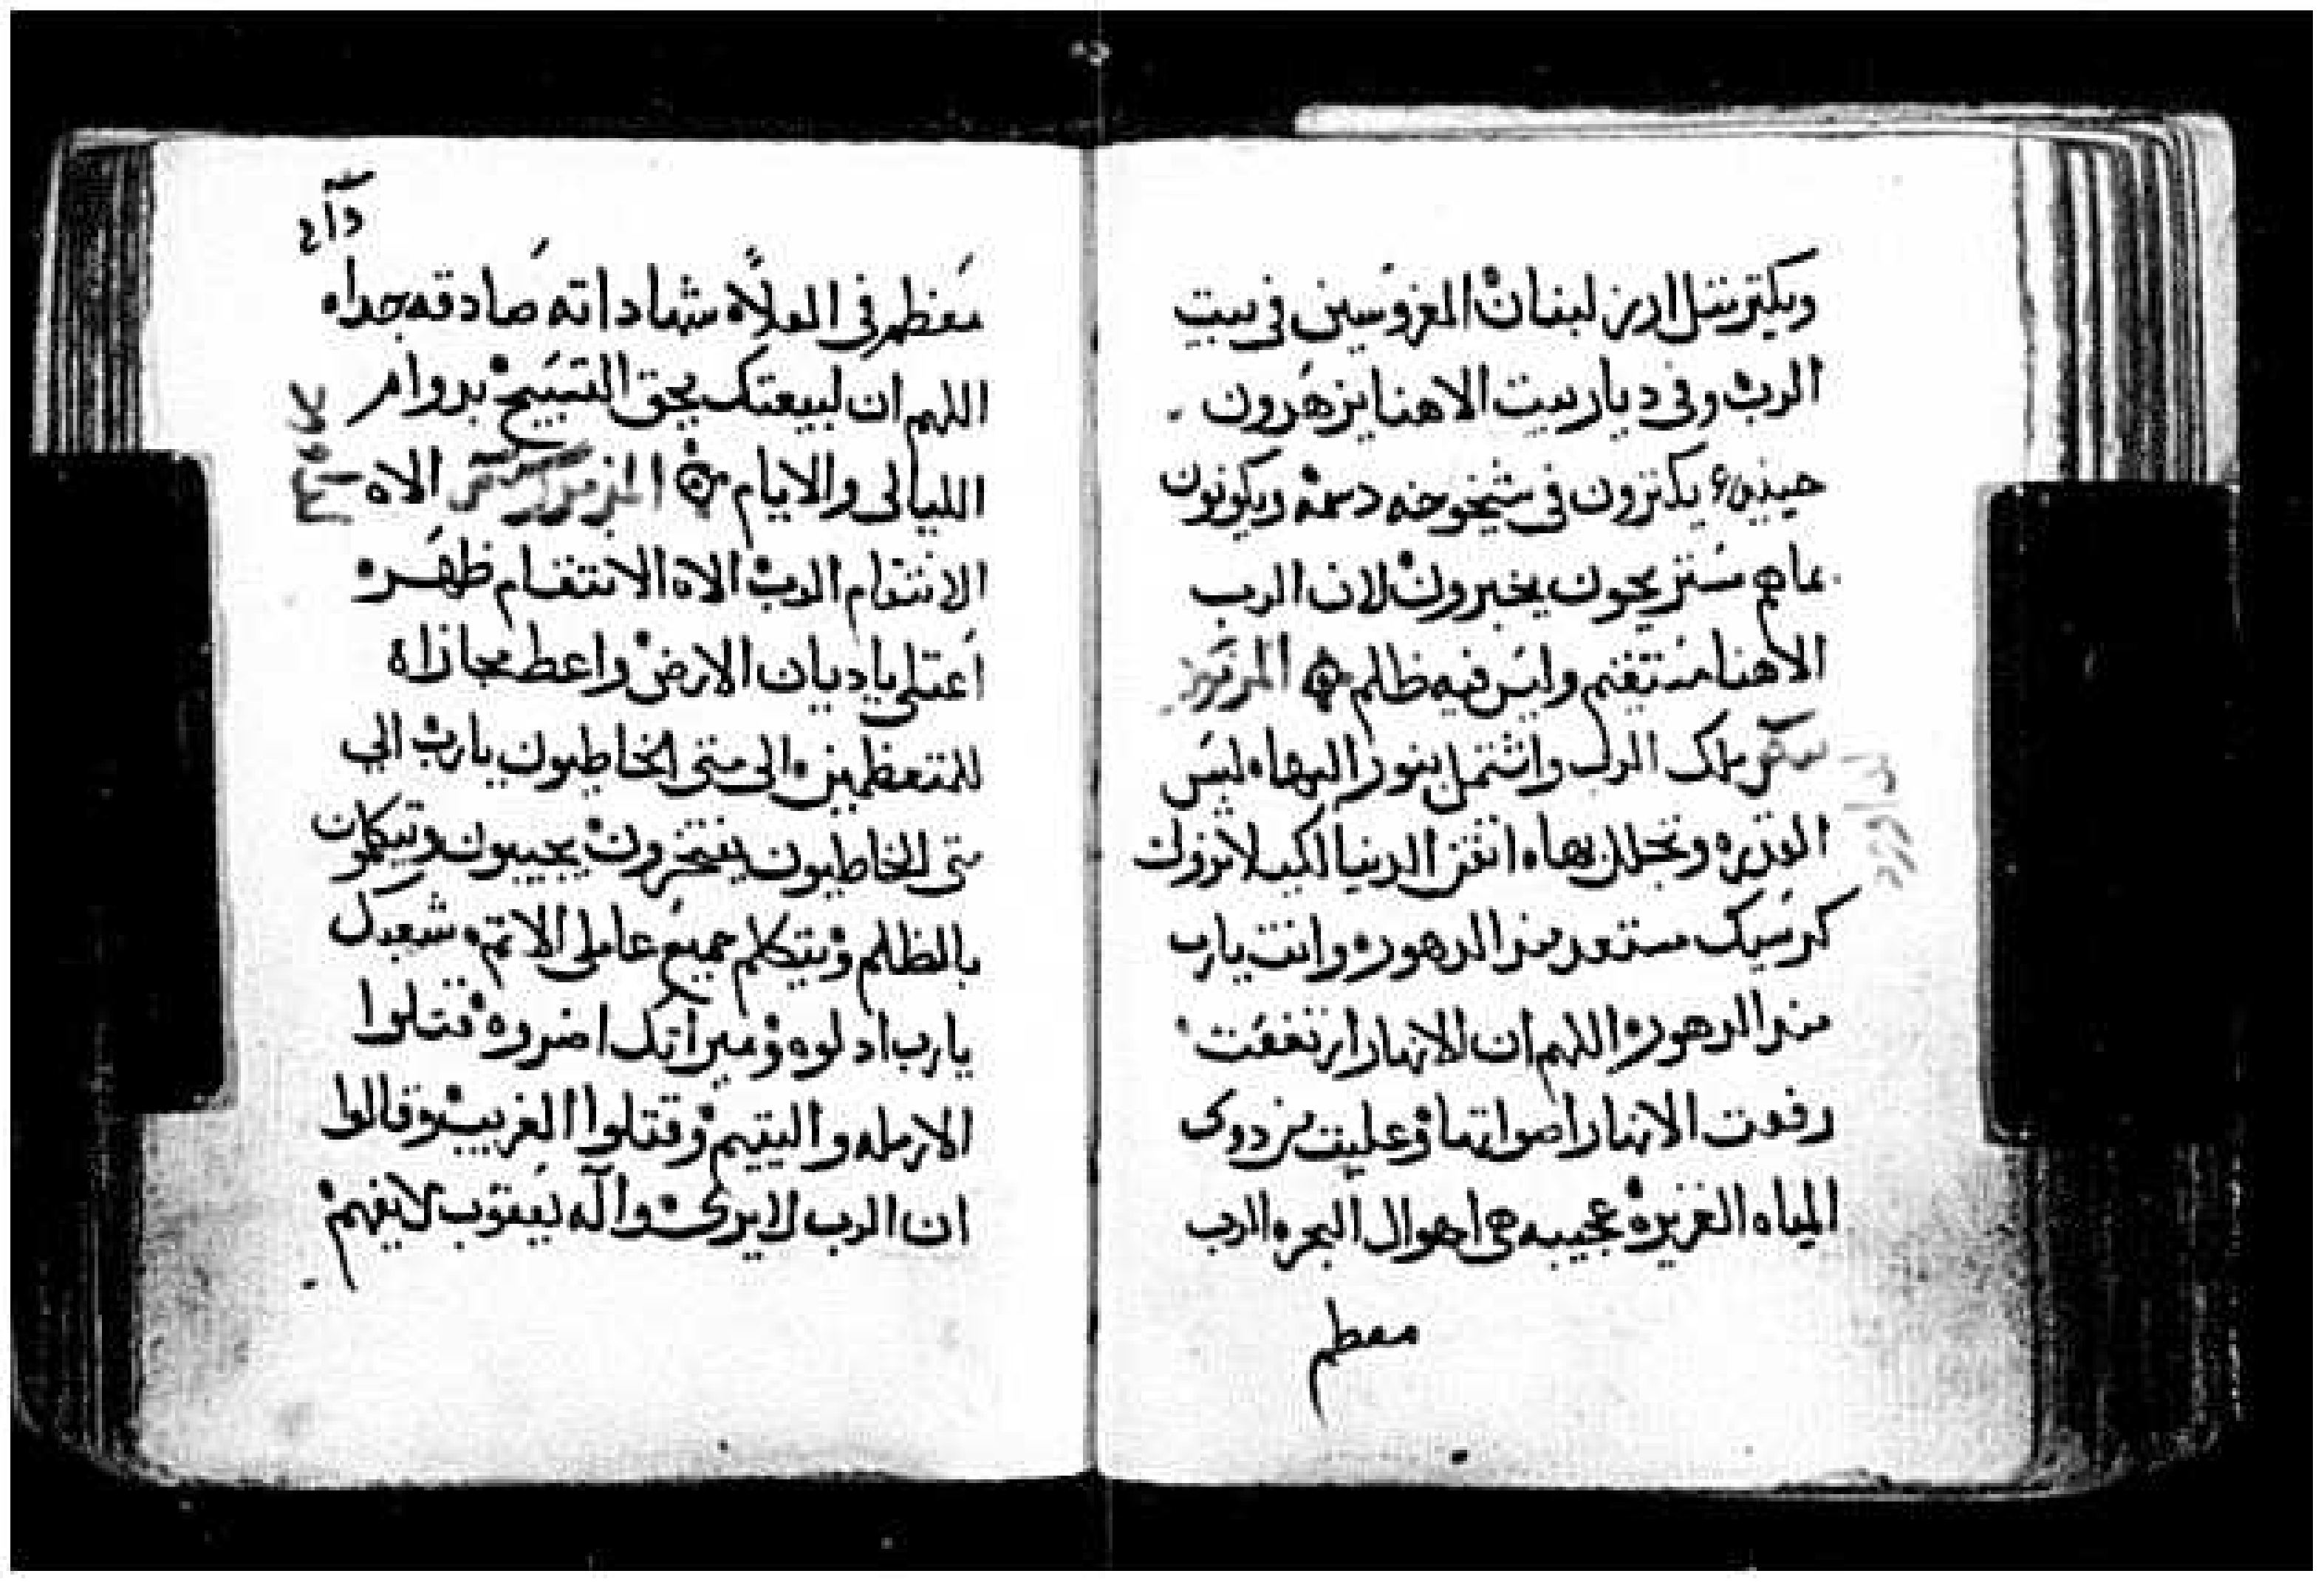 ويكتر متل ارز لبنان المغروسين في بيت
الرب وفي ديار بيت الاهنا يزهرون
حينيد يكترون في شيخوخه دسمه ويكونون
بماهم ستريحون يخبرون لان الرب
الاهنا مستقيم وليس فيه ظلم المزمور
ملك الرب واشتمل بنور البهاء لبس
القدره وتجلل بهاء اتقن الدنيا لكيلا تزول
كرسيك مستعد منذ الدهور وانت يارب
منذ الدهور اللهم ان الانهار ارتفعت
رفعت الانهار اصواتها وعليت من دوي
المياه الغزيره عجيبه هي اهوال البحر الرب
معطم
معظم في العلاء شاداته صادقه جداه
اللهم ان لبيعتك يحق التسبيح بدوام
الليالي والايام المزمور الاه
الانتقام الرب الاه الانتقام ظهر
اعتلي ياديان الارض واعط مجازاه
للمتعظمين الى متى الخاطيون يارب الي
متى الخاطيون يفتخرون يجيبون وتيكلمون
بالظلم ويتكلم جميع عاملي الاتم شعبك
يارب ادلوه وميراتك اضروه قتلوا
الارمله واليتيم وقتلوا الغريب وقالوا
ان الرب لا يرى واله يعقوب لا يفهم